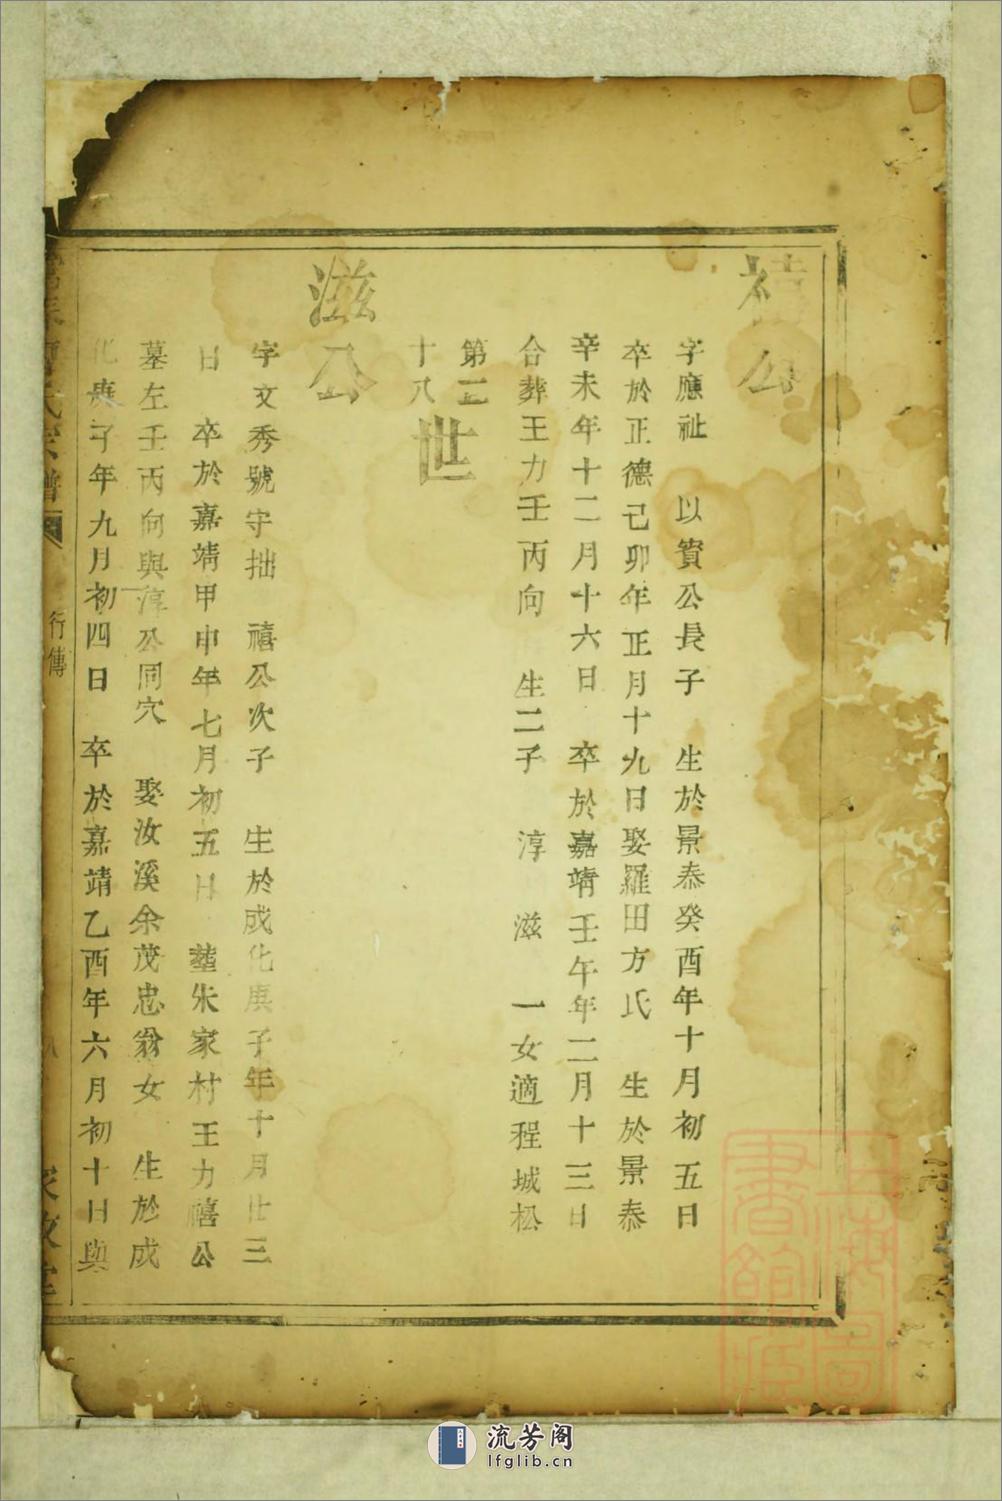 禧公
字應祉　以賓公長子　生於景泰癸酉年十月初五日
卒於正德己卯年正月十九日娶羅田方氏　生於景泰
辛未年十二月十六日　卒於嘉靖壬午年二月十三日
合葬王力壬丙向　生二子　淳　滋　一女適程城松
第二十八世
滋公
字文秀號守拙　禧公次子　生於成化庚子年十月廿三
日　卒於嘉靖甲申年七月初五日　塟朱家村王力禧公
墓左壬丙向與淳公同穴　娶汝溪余茂忠翁女　生於成
化庚子年九月初四日　卒於嘉靖乙酉年六月初十日與
氏宗譜
行傳
上海圖書館藏
流芳阁
lfglib.cn